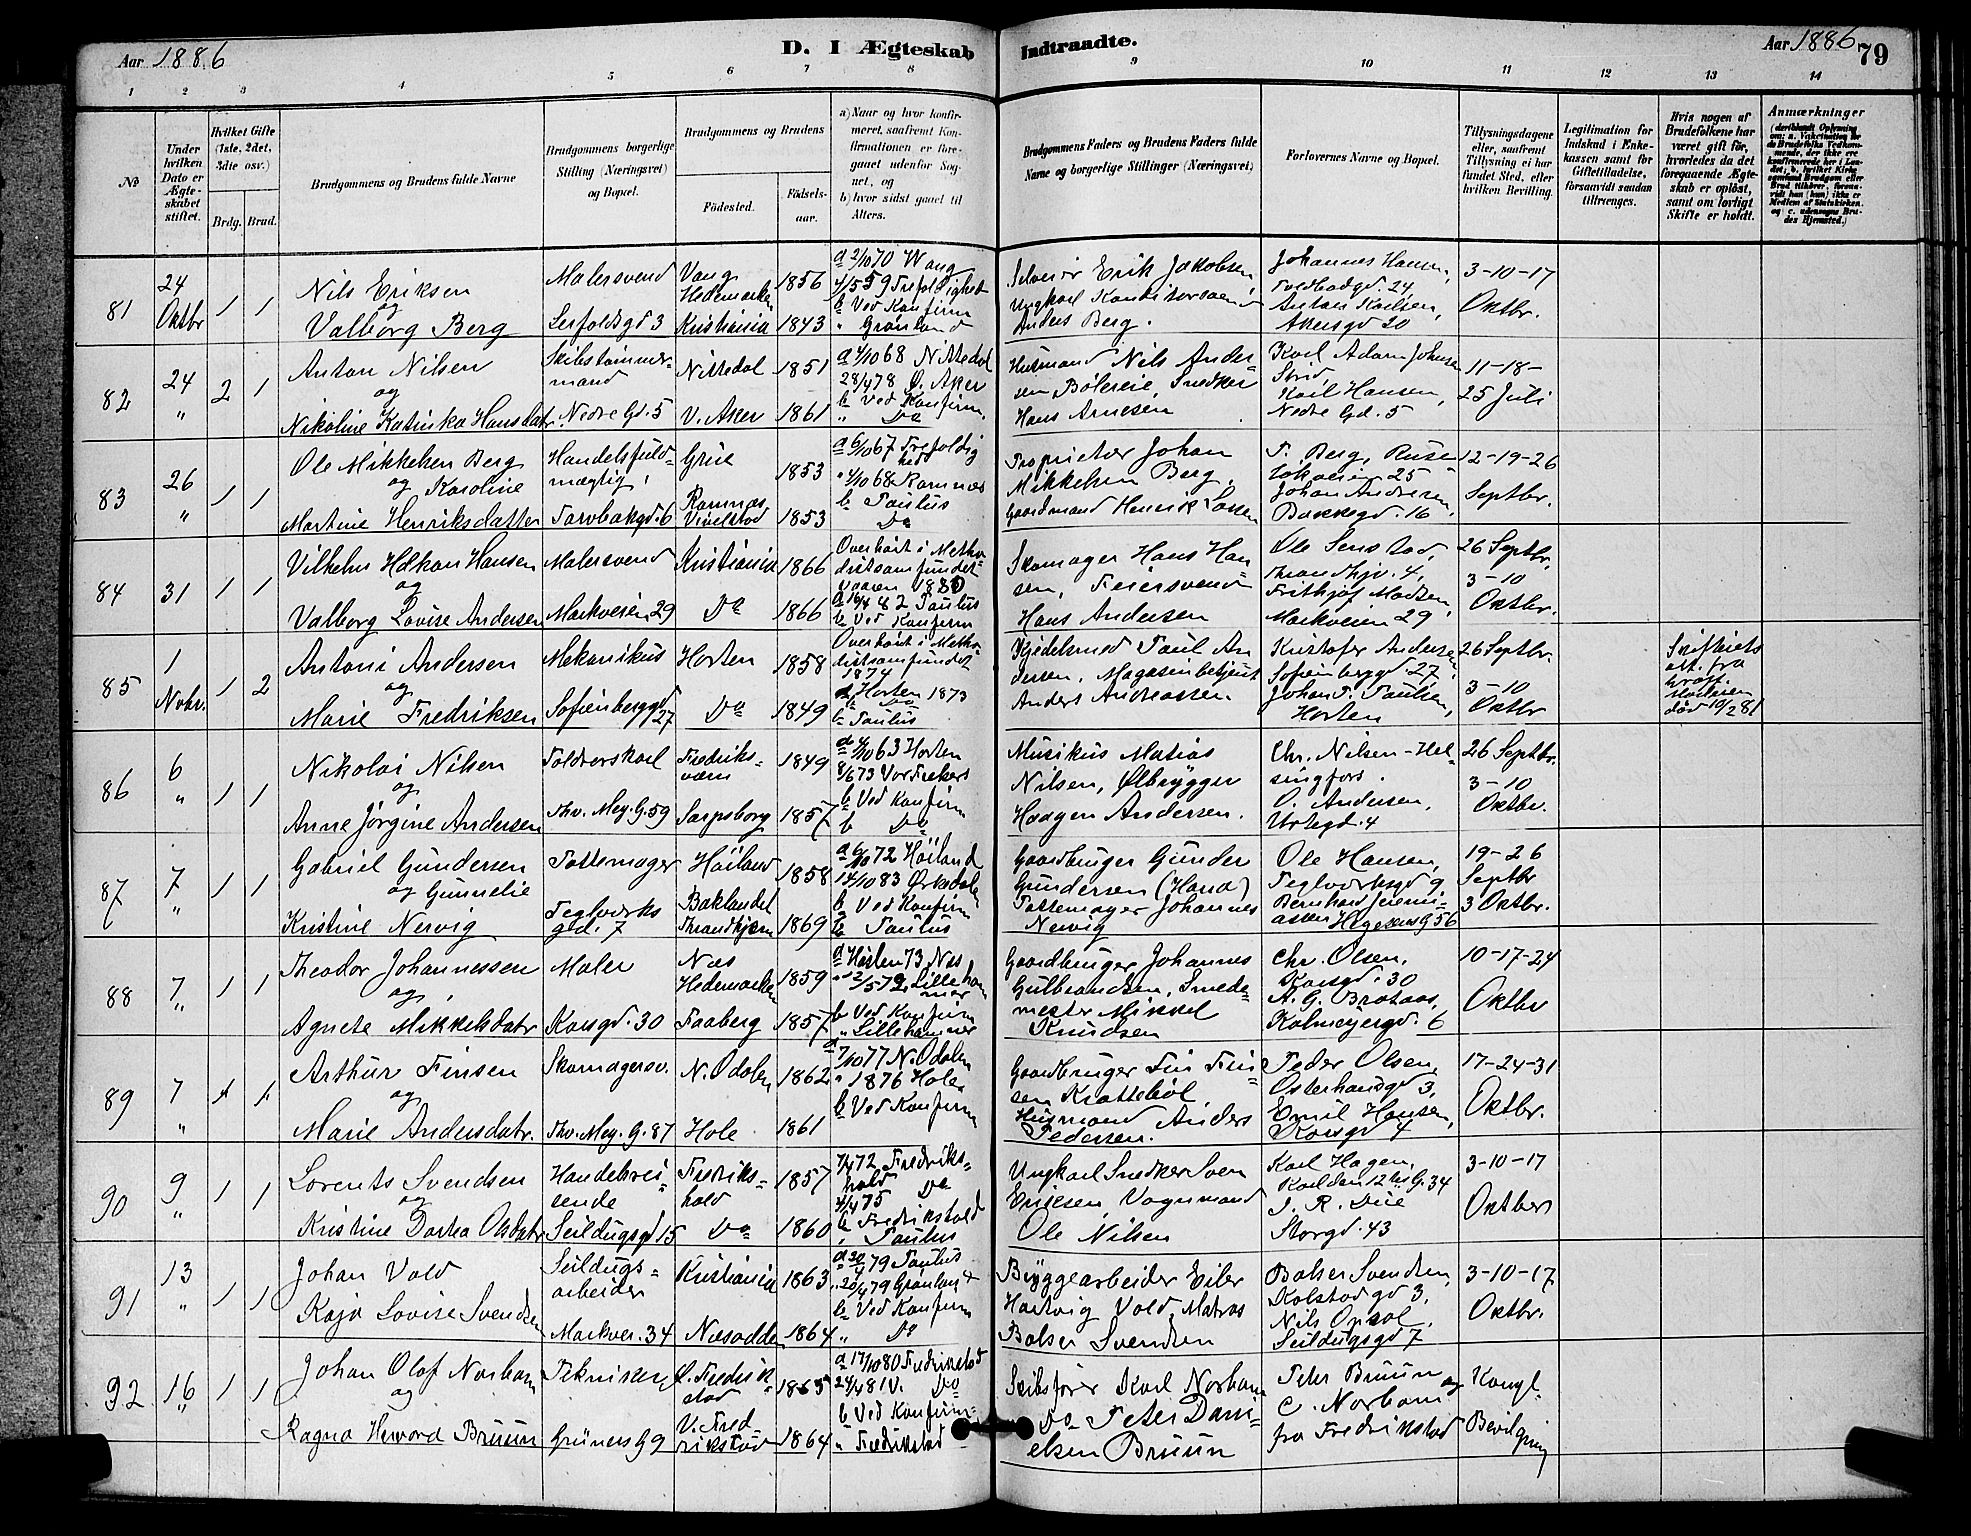 Aar 1886
D. I Ægteskab
Indtraadte.
Aar 1886
79
1 2 3 4 5 6 7 8 9 10 11 12 13 14
No
Under hvilken Dato er Ægteskabet stiftet.
Hvilket Gifte (1ste, 2det, 3die osv.)
Brdg. Brud.
Brudgommens og Brudens fulde Navne
Brudgommens borgerlige Stilling (Næringsvei) og Bopæl.
Brudgommens og Brudens
Fødested.
Fødselsaar.
a) Naar og hvor konfirmeret, saafremt Konfirmationen er foregaaet udenfor Sognet, og
b) hvor sidst gaaet til Alters.
Brudgommens Faders og Brudens Faders fulde Navne og borgerlige Stillinger (Næringsvei)
Forlovernes Navne og Bopæl.
Tillysningsdagene eller, saafremt Tillysning ei har fundet Sted, efter hvilken Bevilling.
Legitimation for Indskud i Enkekassen samt for Giftetilladelse, forsaavidt saadan tiltrænges.
Hvis nogen af Brudefolkene har været gift før, hvorledes da det foregaaende Ægteskab er opløst, samt om lovligt Skifte er holdt.
Anmærkninger
81
24 Oktbr
1 1
Nils Eriksen
og
Valborg Berg
Malersvend
Vang Hedemarken
Kristiania
1856
1843
a 2/10 70 Wang
4/5 59 Trefoldighed
b Ved Konfirm
" Grønland
Erik Jakobsen
Ungkarl Konditorsvend
Anders Berg.
Johannes Hansen,
Toldbodgd. 24
Akersgd 20
3-10-17
Oktbr.
82
24 "
2 1
Anton Nilsen
og
Nikoline Katinka Hansdatr.
Skibstømmermand
Nedre Gd. 5
Nittedal
V. Aker
1851
1861
a 4/10 68 Nittedal
28/4 78 Ø. Aker
b Ved Konfirm.
" Do
Husmand Nils Andersen
Bøleeie, Snedker
Hans Arnesen
Karl Adam Johnsen
Karl Hansen,
Nedre Gd. 5
11-18-
25 Juli
83
26 "
1 1
Ole Mikkelsen Berg
og Karoline
Martine Henriksdatter
Handelsfuldmægtig,
Torvbakgd. 6
Grue
Ramnæs
1853
1853
a 6/10 67 Trefoldighed
" 4/10 68 Ramnæs
b Paulus
Do
Proprietær Johan
Mikkelsen Berg,
Gaardmand Henrik Larsen
T. Berg, Ruseløkveien 25
Johan Andresen,
Bakkegd. 16
12-19-26
Septbr.
84
31
1 1
Vilhelm Håkon Hansen
og
Valborg Lovise Andersen
Malersvend
Markveien 29
Kristiania
Do
1866
1866
Overhørt i Methodistsamfundet
Vaaren 1880
a 16/4 82 Paulus
b Ved Konfirm
Skomager Hans Hansen,
Feiersvend
Hans Andersen
Ole Senstad,
Throndhjv. 4,
Frithjof Madsen,
Markveien 29
26 Septbr.
3-10
Oktbr.
85
1 Novbr.
1 2
Antoni Andersen
og
Marie Fredriksen
Mekanikus
Sofienberggd 27
Horten
Do
1858
1849
Overhørt i Methodistsamfundet
1874
a Horten 1873
b Do
b Paulus
Gjødelsmed Paul Andersen,
Magasinbetjent
Anders Andreassen
Kristofer Andersen,
Sofienberggd. 27,
Johan F. Paulsen,
Horten
26 Septbr.
3-10
Oktbr
Skifteretsatt. fra
død 10/2 81
86
6 "
1 1
Nikolai Nilsen
og
Anne Jörgine Andersen
Toldorskarl
Thv. Mey. G. 59
Fredriksværn
Sarpsborg
1849
1857
a 4/10 63 Horten
8/6 73 Vor Frelsers
b Ved Konfirm
b Do
Musikus Matias
Nilsen, Ølbrygger
Haagen Andersen.
Chr. Nilsen-Helsingfors.
O. Andersen,
Urtegd. 4
26 Septbr.
3-10
Oktbr.
87
7 "
1 1
Gabriel Gundersen
og Gunnelie
Kristine Nervig
Pottemager
Teglverksgd. 7
Høiland
Baklandet
Throndhjem
1858
1869
a 6/10 72 Høiland
14/10 83 Ørkedalen
b Ved Konfirm
b Paulus
Gaardbruger Gunder
Gundersen (Hana)
Pottemager Johannes
Nervig
Ole Hansen,
Teglverksgd 9,
Bernhard Jeremiassen Hegesens G 56
19-26
Septbr
3 Oktbr.
88
7 "
1 1
Theodor Johannessen
og
Agnete Mikkelsdatr
Maler
Korsgd. 30
Næs
Hedemarken
Faaberg
1859
1857
a Høsten 73 Næs
" 12/5 72 Lillehammer
b Ved Konfirm
" Lillehammer
Gaardbruger Johannes
Gulbrandsen, Smedemester Mikkel
Knudsen
Chr. Olsen,
Korsgd. 30
A. G. Brataas,
Kolmeyergd. 6
10-17-24
Oktbr
89
7 "
1 1
Arthur Finsen
og
Marie Andersdatr.
Skomagersv.
Thv. Mey. G. 87
N. Odalen
Hole
1862
1861
a 7/10 77 N. Odalen
" 1876 Hole
b Ved Konfirm
Gaardbruger Fin Finsen
Krattebøl
Husmand Anders
Pedersen.
Peder Olsen,
Østerhausgd 3,
Emil Hansen,
Korsgd 4
17-24-31
Oktbr.
90
9 "
1 1
Lorents Svendsen
og
Kristine Dortea Olsdatr
Handelsreisende
Seildugsgd 15
Fredrikshald
Do
1857
1860
7/4 72 Fredrikshald
4/4 75 Do
b Fredrikshald
" Paulus
Ungkarl Snedker Sven
Eriksen, Vognmand
Ole Nilsen
Karl Hagen,
Karl den 12tes G. 34
J. R. Due
Storgd. 43
3-10-17
Oktober
91
13 "
1 1
Johan Vold
Kaja Lovise Svendsen
Seildugsarbeider
Markvei. 34
Kristiania
Næsodden
1863
1864
a 20/4 79 Paulus
" 20/4 79 Grønland
b Ved Konfirm
" Do
Byggearbeider Eiler
Hartvig Vold, Matros
Balser Svendsen
Balser Svendsen,
Kolstadgd 3,
Nils Opsal,
Seildugsgd 7
3-10-17
Oktbr.
92
16 "
1 1
Johan Olaf Norham
og
Ragna Hervora Bruun
Tekniker
Grüners G 9
Ø. Fredrikstad
V. Fredrikstad
1865
1864
a 17/10 80 Fredrikstad
24/4 81 V. Do
b Ved Konfirm
" Fredrikstad
Skibsfører Karl Norham
Do Peter Danielsen Bruun
Peter Bruun og
C. Norham
fra Fredrikstad
Kongl.
Bevilgning